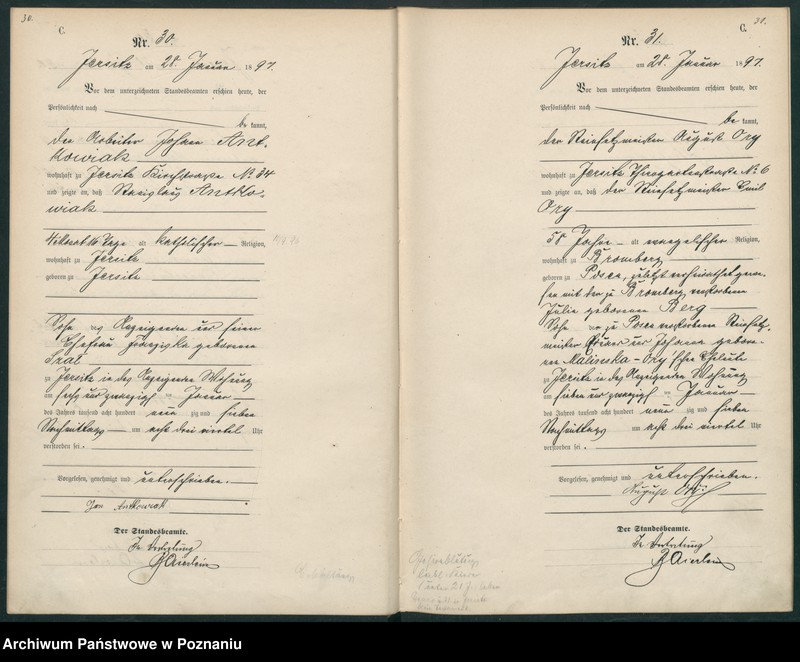 30.
C.
Nr. 30.
Jersitz am 28. Januar 1897.
Vor dem unterzeichneten Standesbeamten erschien heute, der
Persönlichkeit nach
be kannt,
der Arbeiter Johann Ant-
kowiak
wohnhaft zu Jersitz Kirchstrasse No 34
und zeigte an, daß Stanislaus Antko-
wiak
alt katholischer Religion,
wohnhaft zu Jersitz
geboren zu Jersitz
Sohn des Anzeigenden und seiner
Ehefrau Franziska geborenen
Szal
zu Jersitz in des Anzeigenden Wohnung
am sechs und zwanzigsten Januar
des Jahres tausend acht hundert neun zig und sieben
Nachmittags um acht drei viertel Uhr
verstorben sei.
Vorgelesen, genehmigt und unterschrieben.
Jan Antkowiak
Der Standesbeamte.
In Vertretung
C.
31.
Nr. 31.
Jersitz am 28. Januar 1897.
Vor dem unterzeichneten Standesbeamten erschien heute, der
Persönlichkeit nach
be kannt,
der Steinsetzmeister August Ory
wohnhaft zu Jersitz Thiergartenstrasse No 6
und zeigte an, daß der Steinsetzmeister Emil
Ory
58 Jahre alt evangelischer Religion,
wohnhaft zu Bromberg
geboren zu Posen, zuletzt verheirathet gewe-
sen mit der zu Bromberg verstorbenen
Julie geborenen Berg
Sohn der zu Posen verstorbenen Steinsetz-
meister und Johanna gebore-
nen Malinska-Ory'schen Eheleute
zu Jersitz in des Anzeigenden Wohnung
am sieben und zwanzigsten Januar
des Jahres tausend acht hundert neun zig und sieben
Nachmittags um acht drei viertel Uhr
verstorben sei.
Vorgelesen, genehmigt und unterschrieben.
August Ory
Der Standesbeamte.
In Vertretung
Archiwum Państwowe w Poznaniu